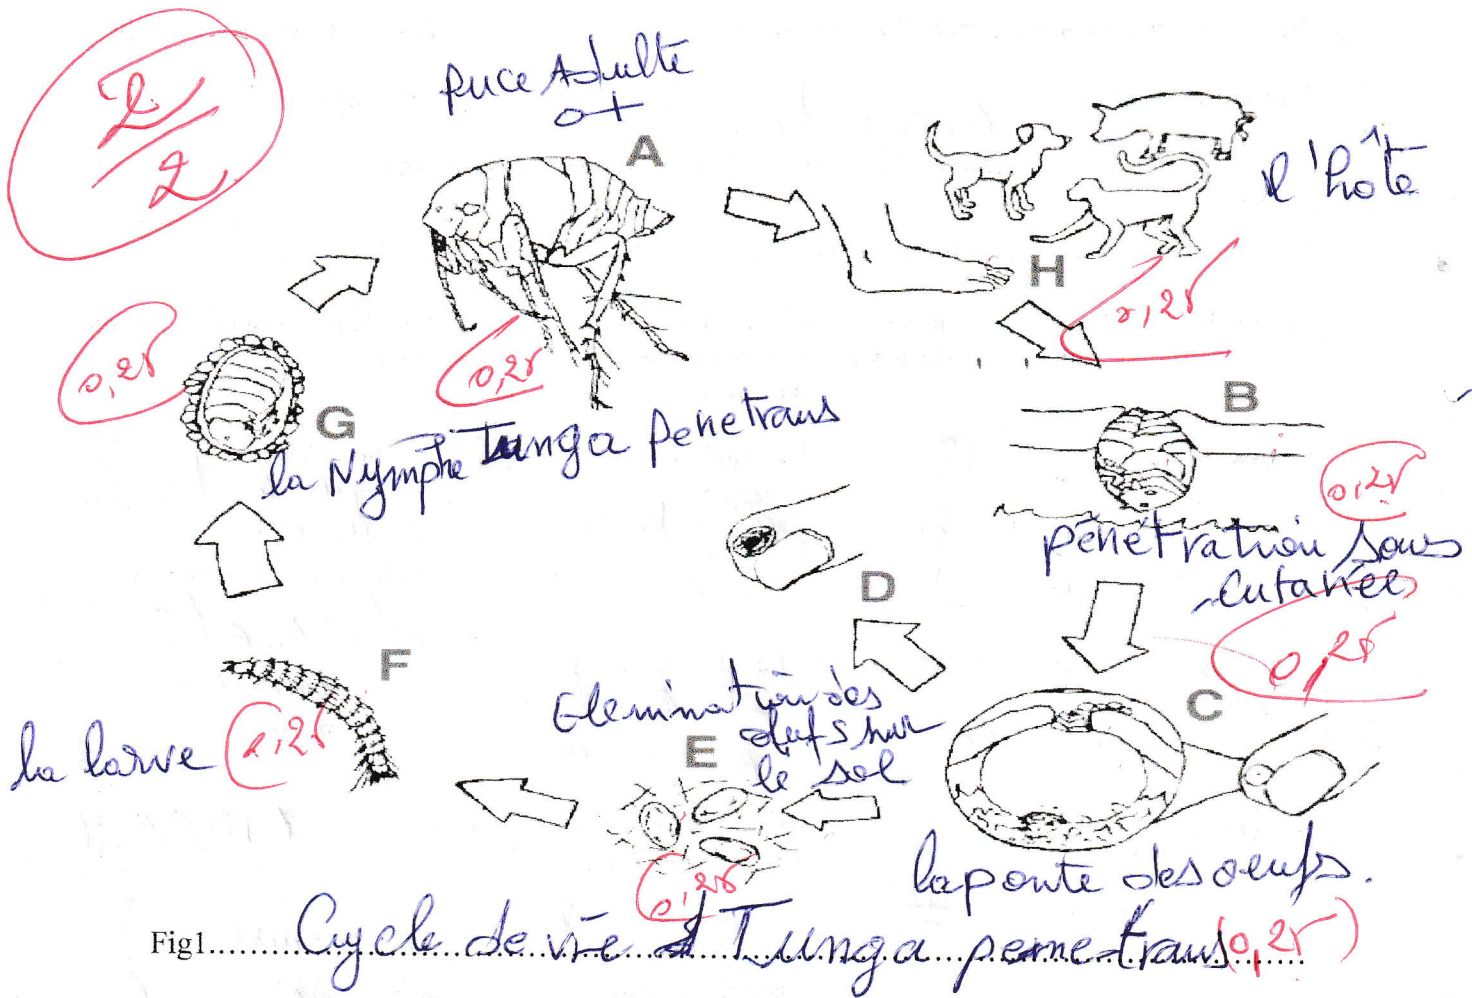 2
2
Puce Adulte
A
l'hôte
H
0,25
0,25
0,25
G
la Nymphe
Tunga penetrans
B
0,25
pénétration sous
cutanée
D
0,25
F
C
la larve
0,25
Elemination des
œufs sur
le sol
E
0,25
la ponte des oeufs.
Fig1. Cycle de vie d Tunga penne-trans 0,25